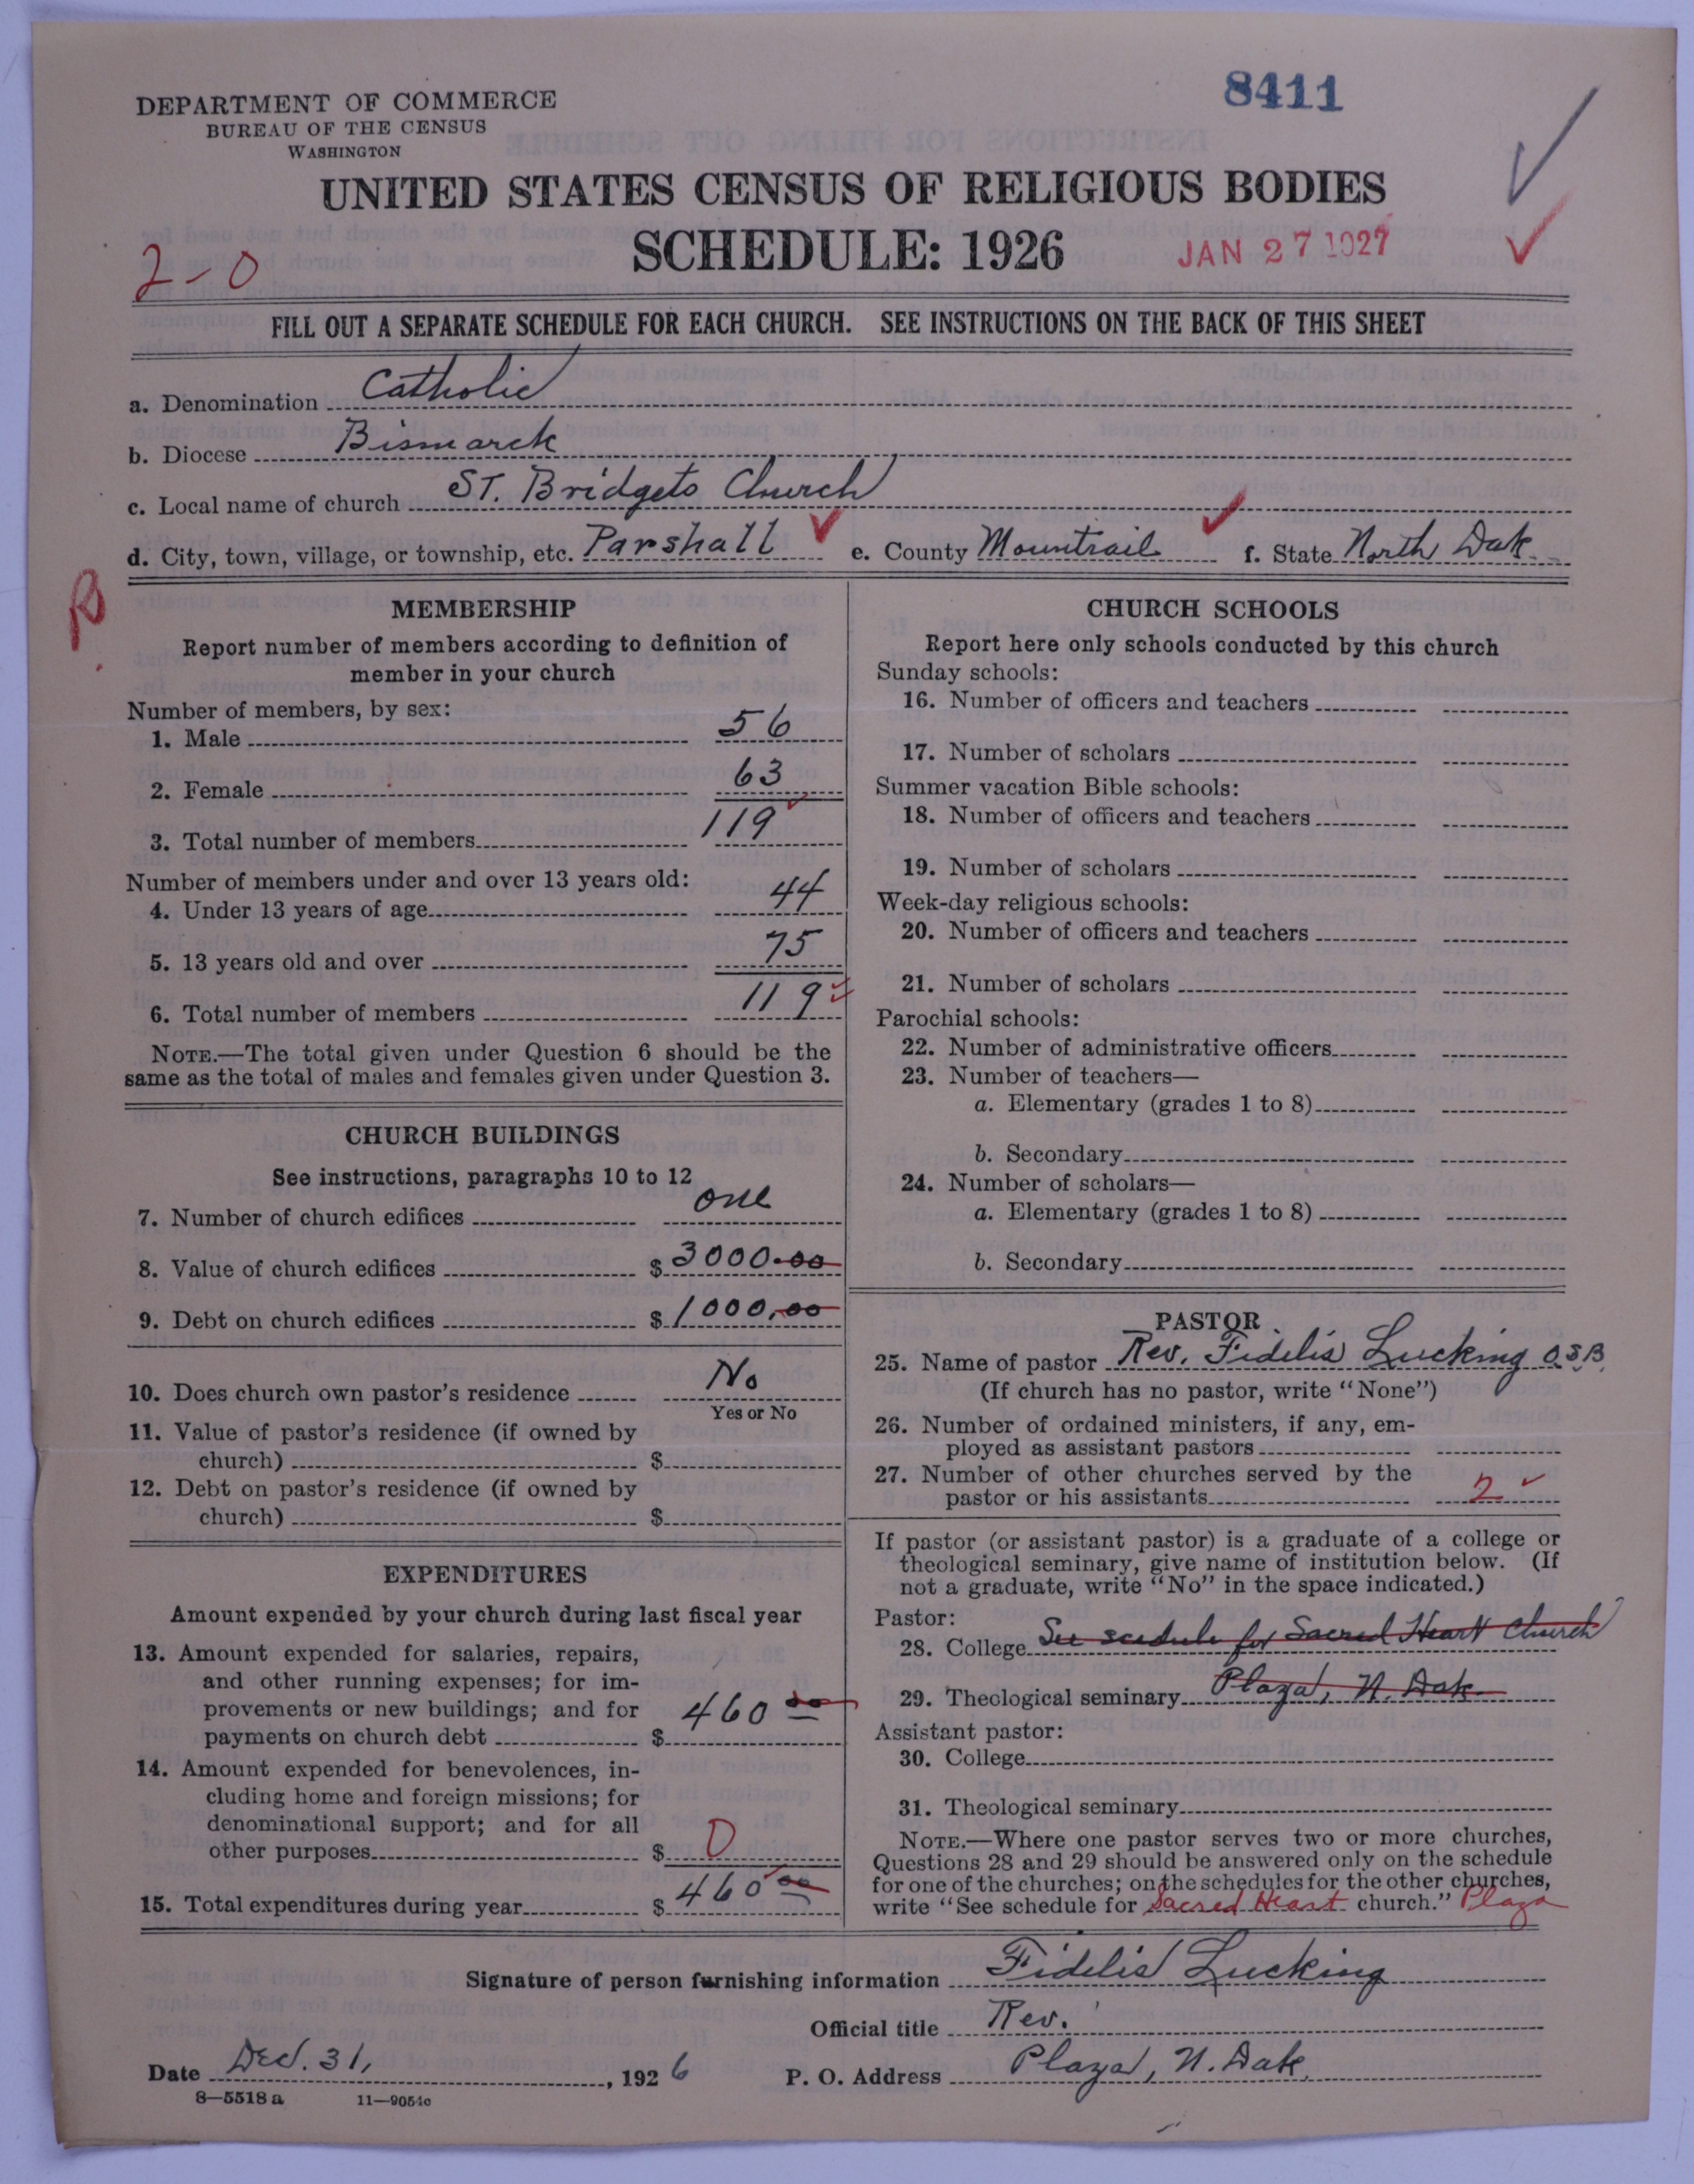 8411
DEPARTMENT OF COMMERCE
BUREAU OF THE CENSUS
WASHINGTON
UNITED STATES CENSUS OF RELIGIOUS BODIES
SCHEDULE: 1926
JAN 27 1927
2-0
FILL OUT A SEPARATE SCHEDULE FOR EACH CHURCH. SEE INSTRUCTIONS ON THE BACK OF THIS SHEET
a. Denomination Catholic
b. Diocese Bismarck
c. Local name of church ST. Bridgets Church
d. City, town, village, or township, etc. Parshall e. County Mountrail f. State North Dak.
MEMBERSHIP
Report number of members according to definition of
member in your church
Number of members, by sex:
1. Male 56
2. Female 63
3. Total number of members 119
Number of members under and over 13 years old:
4. Under 13 years of age 44
5. 13 years old and over 75
6. Total number of members 119
NOTE.—The total given under Question 6 should be the
same as the total of males and females given under Question 3.
CHURCH BUILDINGS
See instructions, paragraphs 10 to 12
7. Number of church edifices one
8. Value of church edifices $ 3000.00
9. Debt on church edifices $ 1000.00
10. Does church own pastor's residence No
Yes or No
11. Value of pastor's residence (if owned by
church) $
12. Debt on pastor's residence (if owned by
church) $
EXPENDITURES
Amount expended by your church during last fiscal year
13. Amount expended for salaries, repairs,
and other running expenses; for im-
provements or new buildings; and for
payments on church debt $ 460 00
14. Amount expended for benevolences, in-
cluding home and foreign missions; for
denominational support; and for all
other purposes $ 0
15. Total expenditures during year $ 460 00
CHURCH SCHOOLS
Report here only schools conducted by this church
Sunday schools:
16. Number of officers and teachers
17. Number of scholars
Summer vacation Bible schools:
18. Number of officers and teachers
19. Number of scholars
Week-day religious schools:
20. Number of officers and teachers
21. Number of scholars
Parochial schools:
22. Number of administrative officers
23. Number of teachers—
a. Elementary (grades 1 to 8)
b. Secondary
24. Number of scholars—
a. Elementary (grades 1 to 8)
b. Secondary
PASTOR
25. Name of pastor Rev. Fidelis Lucking O.S.B.
(If church has no pastor, write "None")
26. Number of ordained ministers, if any, em-
ployed as assistant pastors
27. Number of other churches served by the
pastor or his assistants 2
If pastor (or assistant pastor) is a graduate of a college or
theological seminary, give name of institution below. (If
not a graduate, write "No" in the space indicated.)
Pastor:
28. College See scedule for Sacred Heart Church
29. Theological seminary Plaza, N. Dak.
Assistant pastor:
30. College
31. Theological seminary
NOTE.—Where one pastor serves two or more churches,
Questions 28 and 29 should be answered only on the schedule
for one of the churches; on the schedules for the other churches,
write "See schedule for Sacred Heart church." Plaza
Signature of person furnishing information Fidelis Lucking
Official title Rev.
Date Dec. 31, 1926 P. O. Address Plaza, N. Dak.
8—5518 a 11—9054c